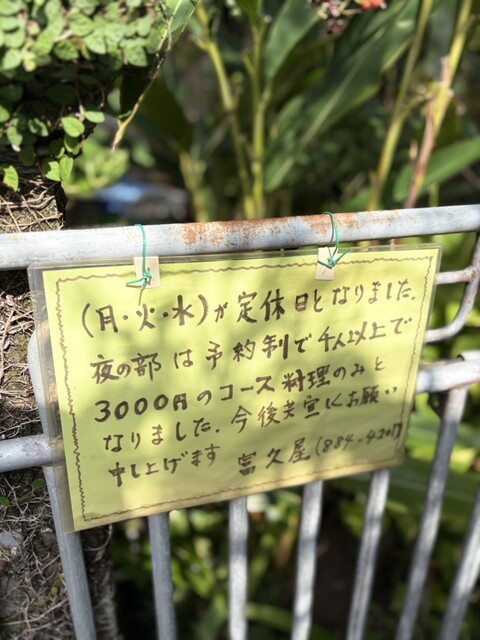 (月・火・水)が定休日となりました.
夜の部は予約制で4人以上で
3000円のコース料理のみと
なりました.今後共宜しくお願い
申し上げます 富久屋(884-4207)